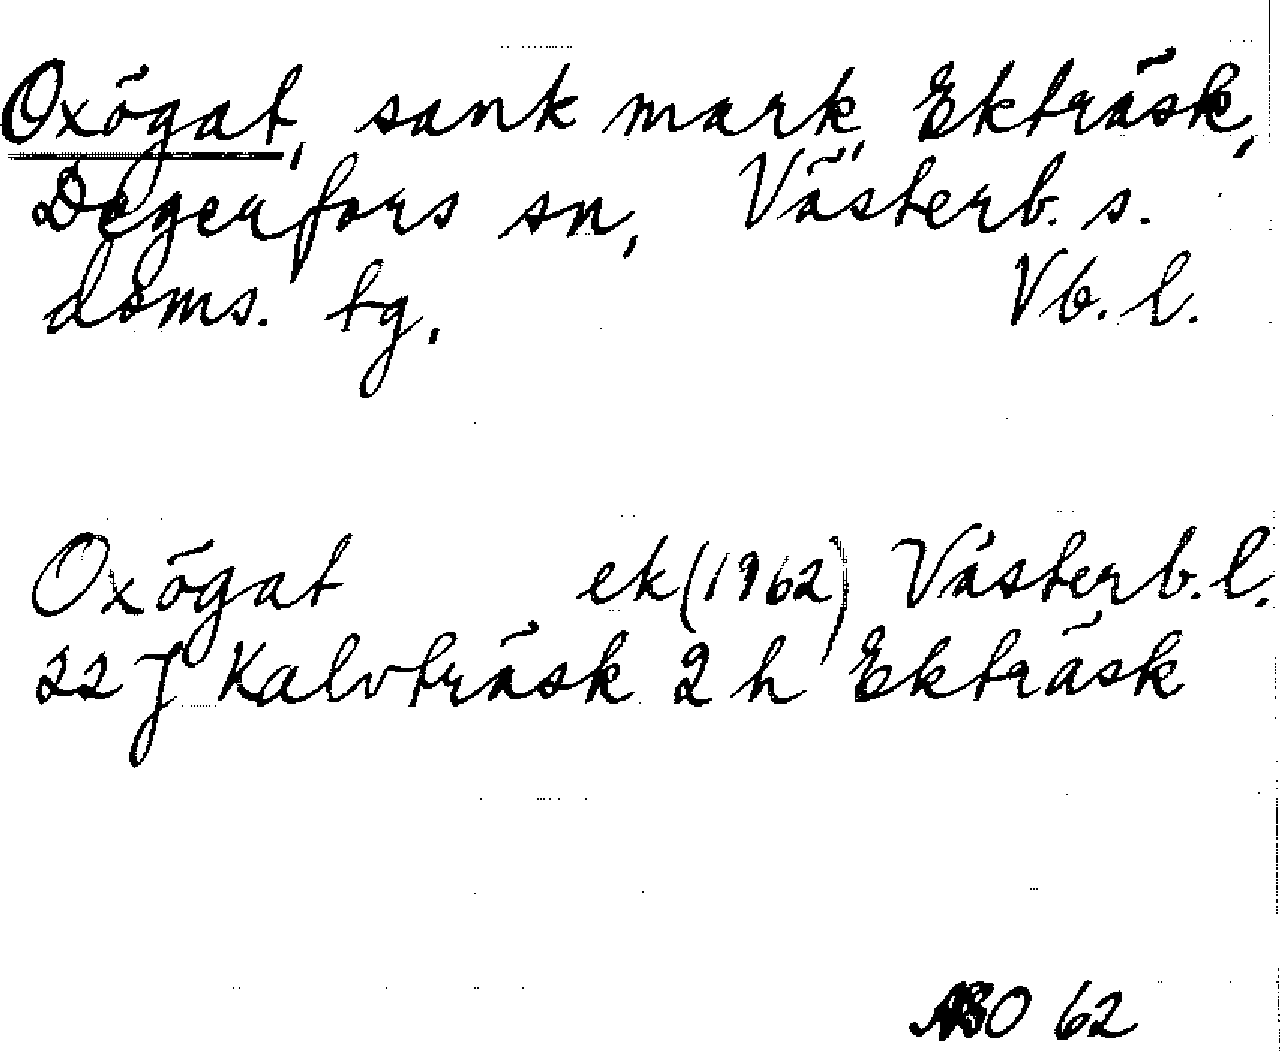 Oxögat, sank mark, Ekträsk,
Degerfors sn, Västerb. s.
doms. tg, Vb. l.
Oxögat ek (1962) Västerb. l.
22 J Kalvträsk 2 h Ekträsk
ABO 62